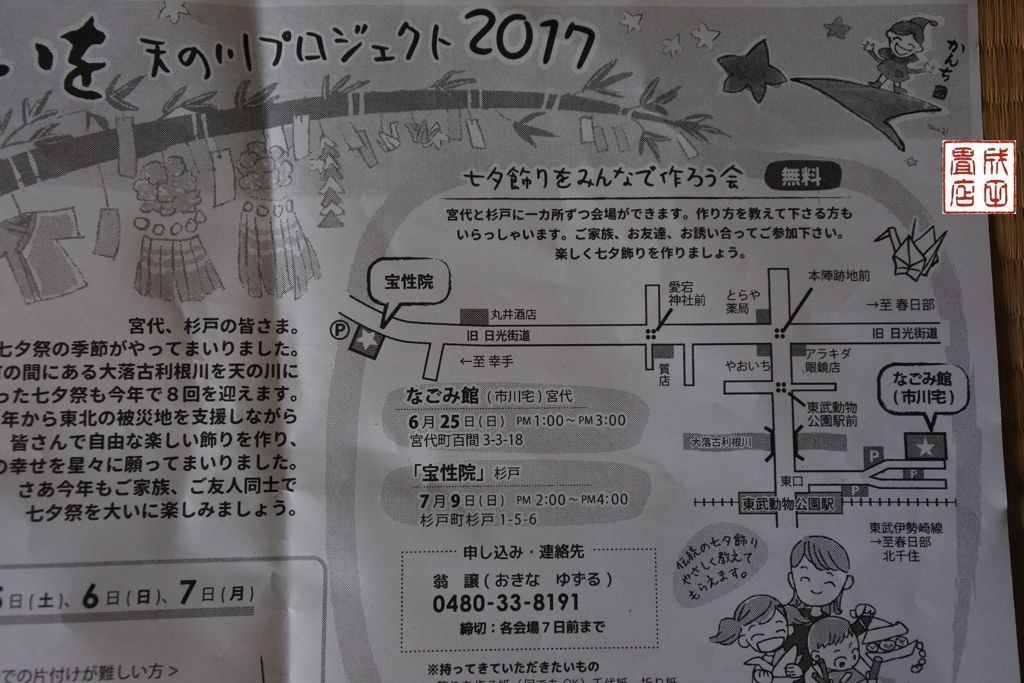 いを 天の川プロジェクト2017
かんち
成平畳店
七夕飾りをみんなで作ろう会 無料
宮代と杉戸に一カ所ずつ会場ができます。作り方を教えて下さる方も
いらっしゃいます。ご家族、お友達、お誘い合ってご参加下さい。
楽しく七夕飾りを作りましょう。
宮代、杉戸の皆さま。
七夕祭の季節がやってまいりました。
の間にある大落古利根川を天の川に
った七夕祭も今年で8回を迎えます。
年から東北の被災地を支援しながら
皆さんで自由な楽しい飾りを作り、
の幸せを星々に願ってまいりました。
さあ今年もご家族、ご友人同士で
七夕祭を大いに楽しみましょう。
宝性院
P
丸井酒店
愛宕
神社前
とらや
薬局
本陣跡地前
→至 春日部
旧 日光街道
旧 日光街道
←至 幸手
質店
やおいち
アラキダ
眼鏡店
なごみ館
(市川宅)
東武動物
公園駅前
大落古利根川
P
P
P
東口
東武動物公園駅
東武伊勢崎線
→至春日部
北千住
なごみ館 (市川宅) 宮代
6月25日(日) PM1:00~PM3:00
宮代町百間3-3-18
「宝性院」杉戸
7月9日(日) PM2:00~PM4:00
杉戸町杉戸1-5-6
申し込み・連絡先
翁 譲(おきな ゆずる)
0480-33-8191
締切:各会場7日前まで
伝統の七夕飾り
やさしく教えて
もらえます。
日(土)、6日(日)、7日(月)
での片付けが難しい方>
※持ってきていただきたいもの